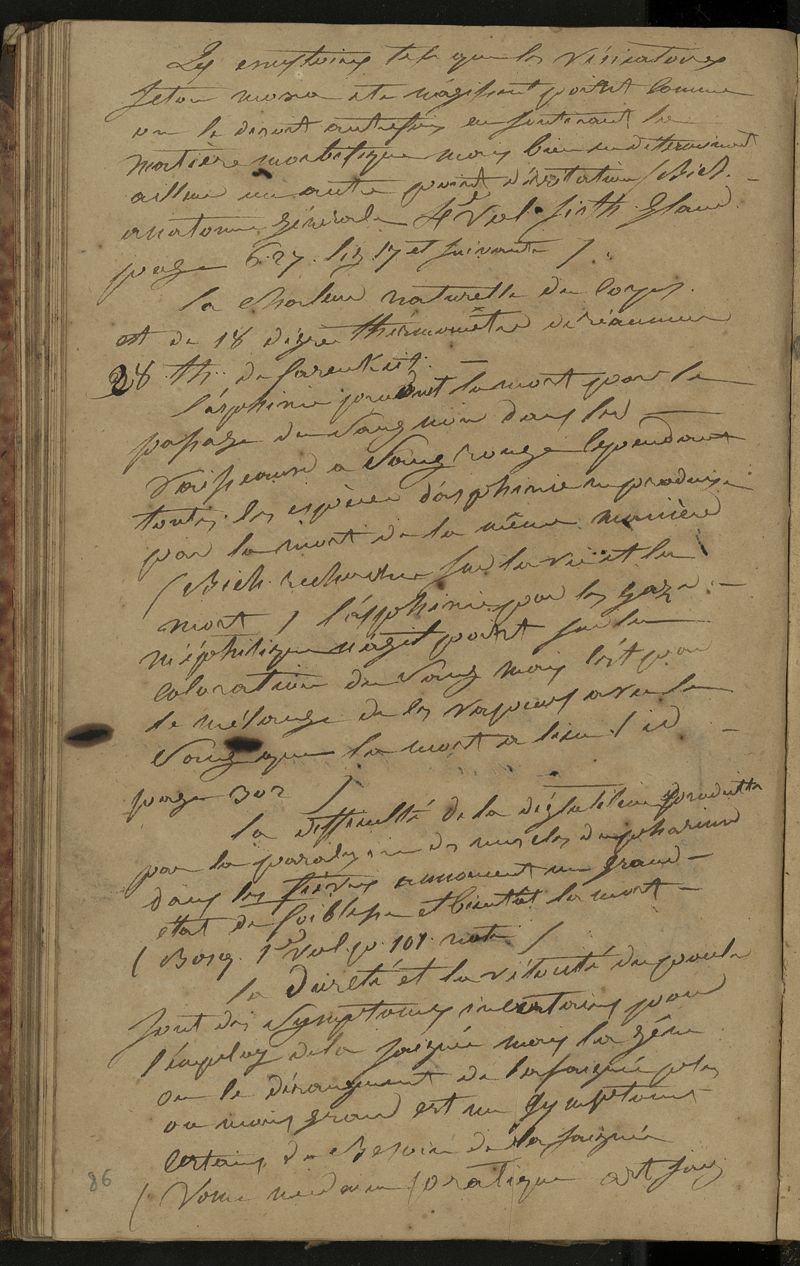 Les emytoires tels que les vésicatoires
seton moxa etc n'agissent point comme
on le disoit autrefois en soutirant la
matière morbifique mais bien en determinant
ailleur un autre point d'irritation (Bich.
anatomie générale 4e Vol. sisth. Gland.
page 627. lig 17 et suivante )
la chaleur naturelle du corps
est de 18 dégre thermomètre de réaumur
28 th. de farenheit. —
l'asphixie produit la mort par le
passage du sang noir dans les
vaisseaux a sang rouge cependant
toutes les espèces d'asphixie ne produise
pas la mort de la même manière
(Bich. recherche sur la vie et la
mort ) l'asphixie par les gaze —
méphitique n'agit point sur la
coloration du sang mais c'est par
le mélange de les vapeurs avec le
sang que la mort a lieu ( id —
page 302 )
la difficulté de la déglutition produitte
par la paralysie des muscles du pharinx
dans les fièvres annoncent un grand —
état de foiblesse et bientôt la mort —
( Bosq. 1er Vol. p. 101 note )
la dureté et la du poulx
sont des symptomes incertains pour
l'employ de la saignée mais la gêne
ou le dérangement de plus
ou moins grand est un symptome
certain du Besoin de la saignée
( Voyez medecine pratique art
86